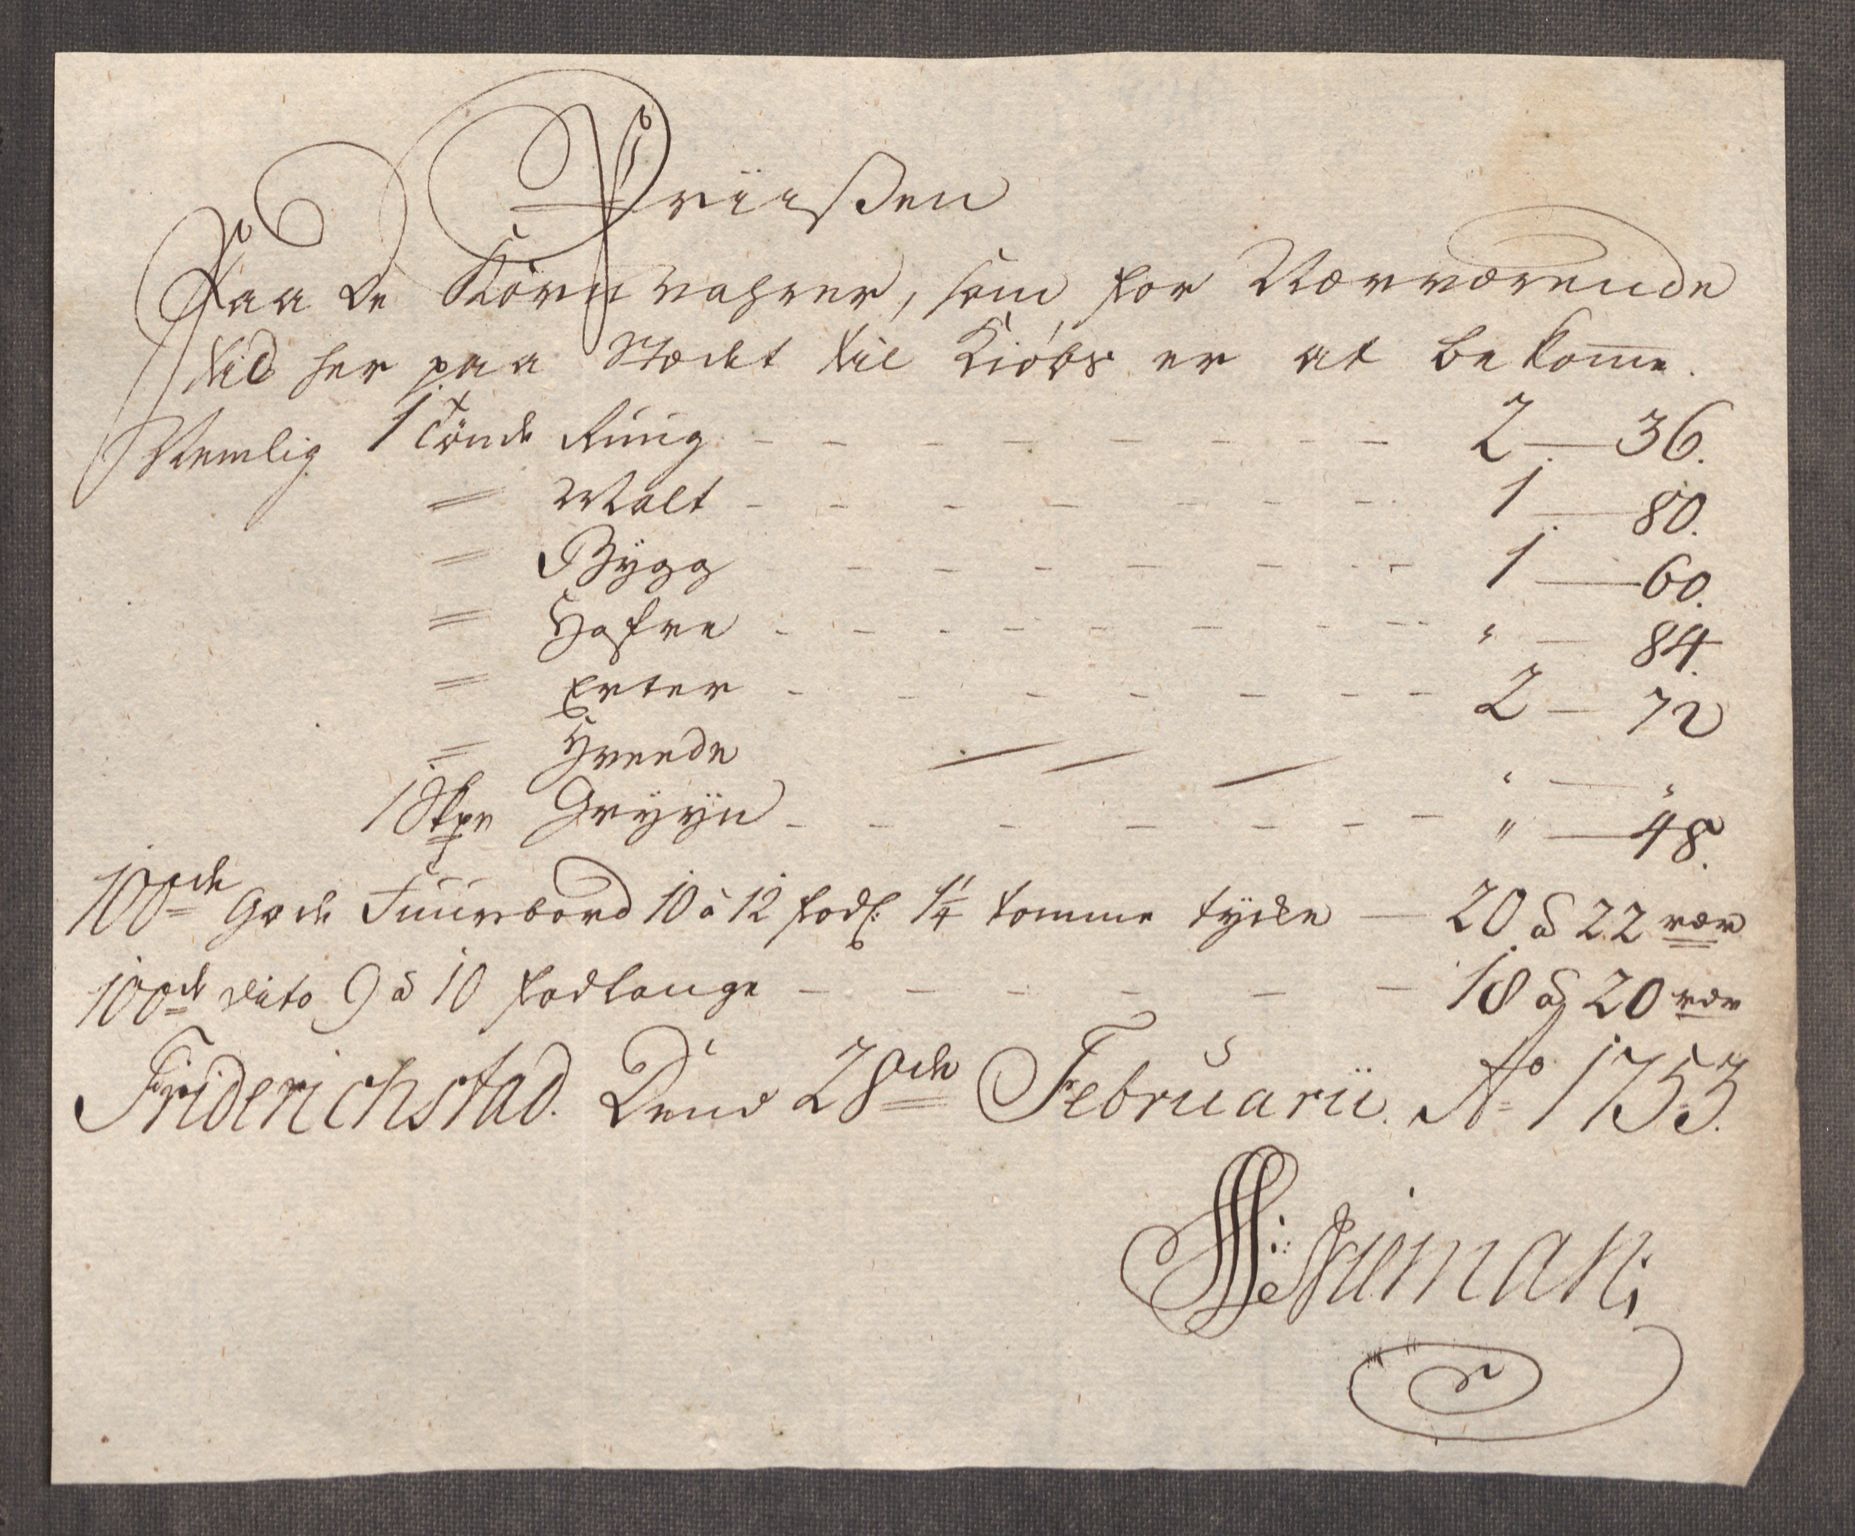 Priißen
Paa de Korn vahrer, som for Nærværende
tid her paa Stædet til Kiöbs er at bekome.
Nemlig 1 Tönde Rúug - - - - - - - 2 — 36.
= Malt - - - - - - - 1 — 80.
= Bÿgg - - - - - - - 1 — 60.
= Hafre - - - - - - - " — 84.
= Erter - - - - - - - 2 — 72
= Hveede — — — " — "
1 Skpe Grÿÿn - - - - - - - " — 48.
100de Gode Fuurbord 10 à 12 fodl: 1¼ tomme tÿcke — 20 à 22 rdr
100de dito 9 à 10 fodlange - - - - - - 18 à 20 rdr
Friderichstad. Dend 28de Februarii. Ao 1753.